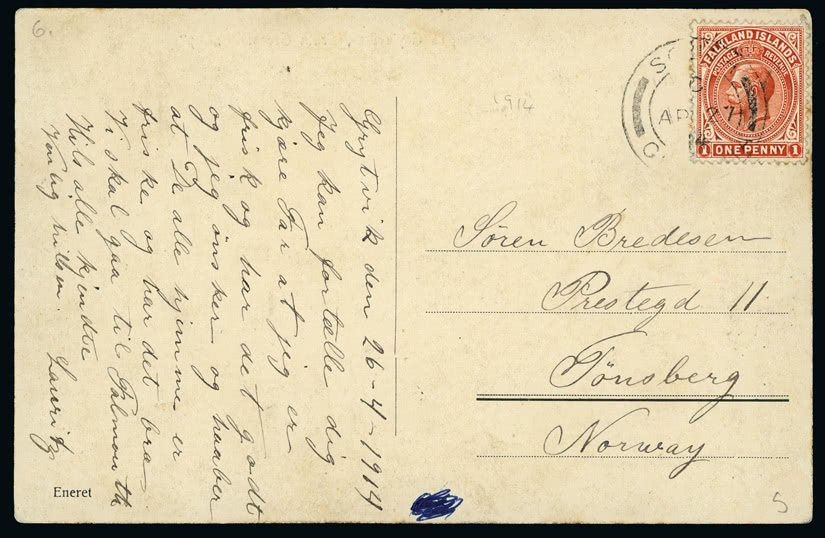 6.
Grytvik den 26-4-1914
Jeg kan fortælle dig
kjære Far at jeg er
frisk og har det godt
og jeg önsker og haaber
at De alle hjemme er
friske og har det bra
Vi skal gaa til Falmouth
Hils alle kjendte
Venlig hilsen Lauritz
Eneret
1914
FALKLAND ISLANDS
POSTAGE REVENUE
1 ONE PENNY 1
AP
Sören Bredesen
Prestegd 11
Tönsberg
Norway
5